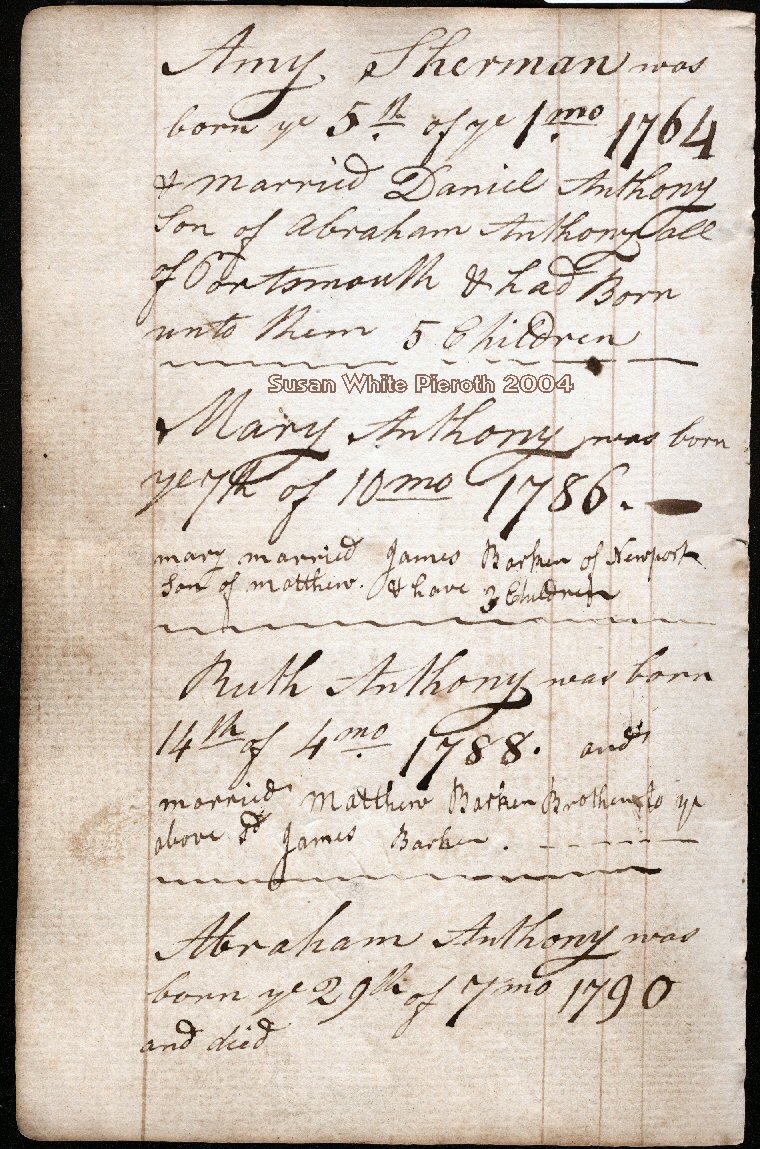 Amy Sherman was
born ye 5th of ye 1mo 1764
& married Daniel Anthony
Son of Abraham Anthony all
of Portsmouth & had Born
unto them 5 Children
Susan White Pieroth 2004
Mary Anthony was born
ye 7th of 10mo 1786.
mary married James Barker of Newport
Son of matthew. & have 3 Children
Ruth Anthony was born
14th of 4mo 1788. and
married Matthew Barker Brother to ye
above sd James Barker.
Abraham Anthony was
born ye 29th of 7mo 1790
and died